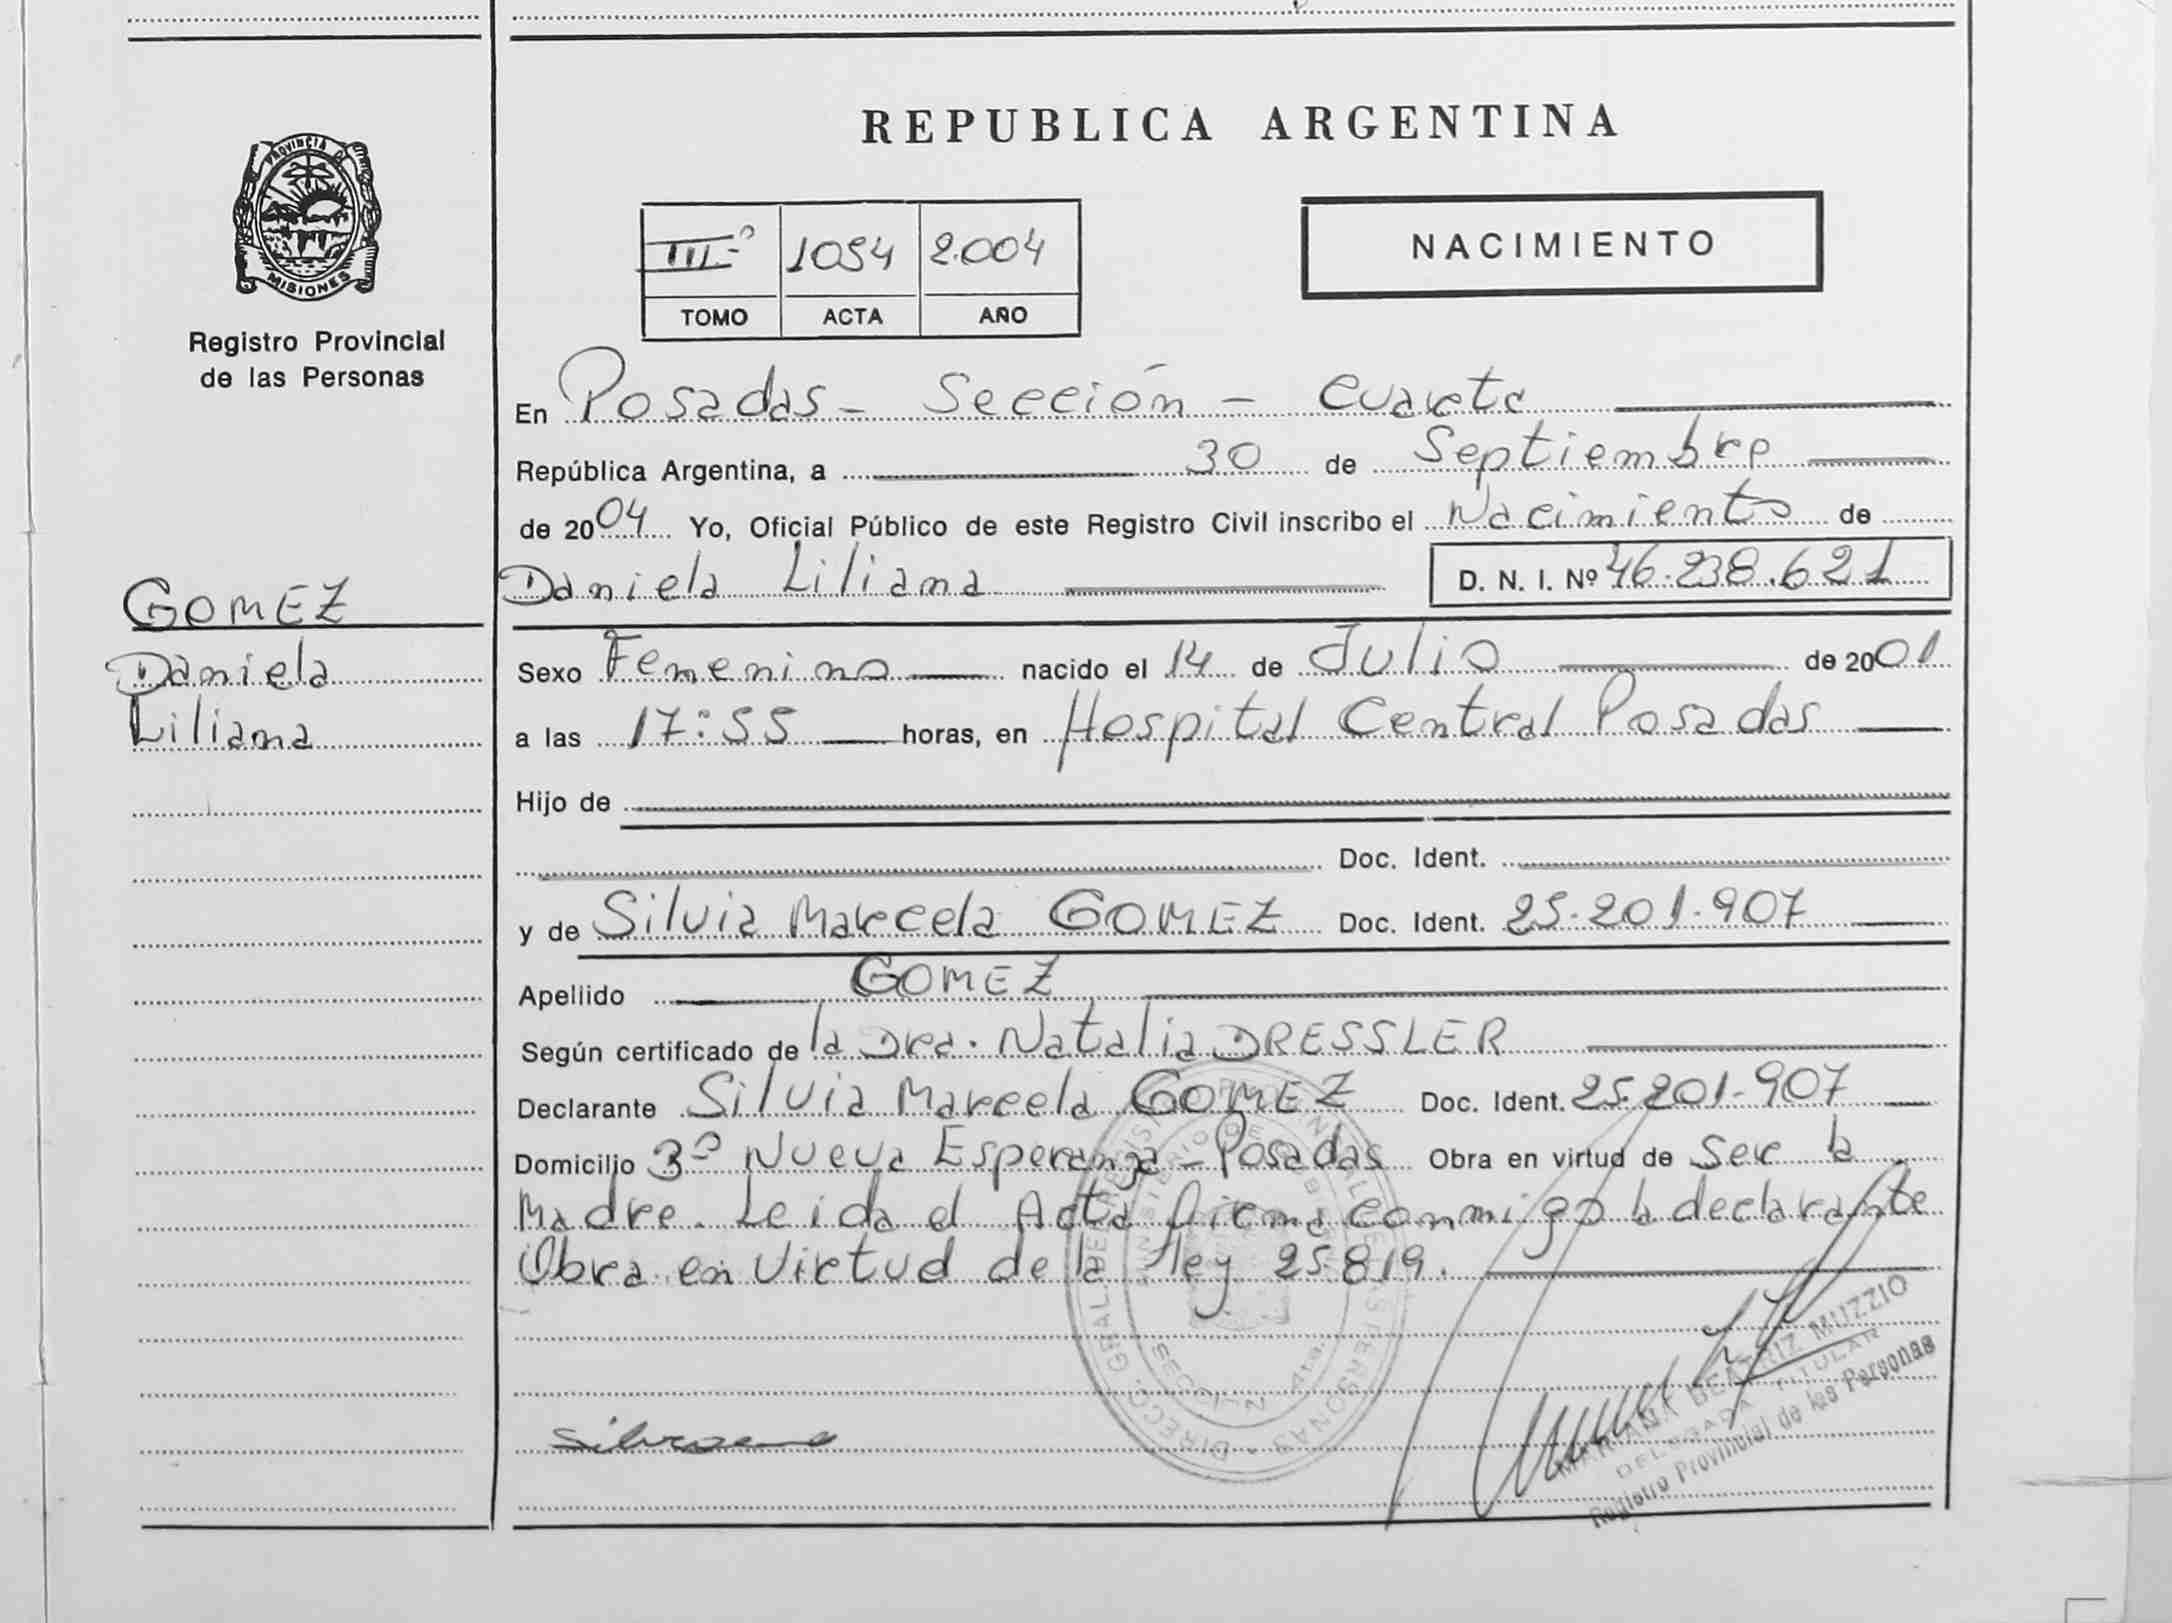 PROVINCIA DE
MISIONES
Registro Provincial
de las Personas
GOMEZ
Daniela
Liliana
REPUBLICA ARGENTINA
III-º 1054 2.004
TOMO ACTA AÑO
NACIMIENTO
En Posadas - Sección - Cuarta
República Argentina, a 30 de Septiembre
de 2004 Yo, Oficial Público de este Registro Civil inscribo el Nacimiento de
Daniela Liliana D. N. I. Nº 46.238.621
Sexo Femenino nacido el 14 de Julio de 2001
a las 17:55 horas, en Hospital Central Posadas
Hijo de
Doc. Ident.
y de Silvia Marcela GOMEZ Doc. Ident. 25.201.907
Apellido GOMEZ
Según certificado de la Dra. Natalia DRESSLER
Declarante Silvia Marcela GOMEZ Doc. Ident. 25.201.907
Domicilio Bº Nueva Esperanza - Posadas Obra en virtud de Ser la
Madre. Leida el Acta firma conmigo la declarante
Obra en Virtud de la ley 25.819.
MARIANA BEATRIZ MUZZIO
DELEGADA TITULAR
Registro Provincial de las Personas